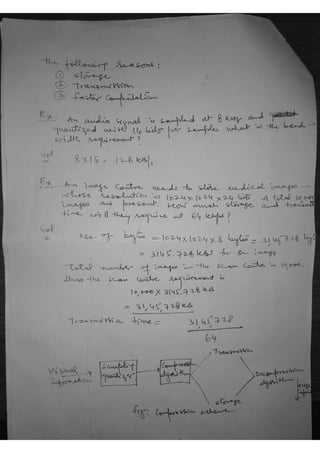 the following reasons:
① storage
② Transmission
③ Faster Computation
Ex. An audio signal is sampled at 8 kHz and
quantized with 16 bits per sample. what is the band-
width requirement?
Sol. 8×16 = 128 kB/s
Ex. An image Centre needs to store medical images
whose resolution is 1024×1024×24 bits. A total 10,000
images are present. How much storage and
time will they require at 64 kbps?
Sol. No. of bytes = 1024×1024×3 bytes = 3145728
= 3145.728 kB for an image
Total number of images in the scan Centre is 10,000.
thus the scan Centre requirement is
10,000 × 3145.728 kB
= 31,45,728 kB
Transmission time = 31,45,728
64
Visual information
Sampling quantizer
Compression algorithm
Transmission
storage
Decompression algorithm
fig: Compression scheme